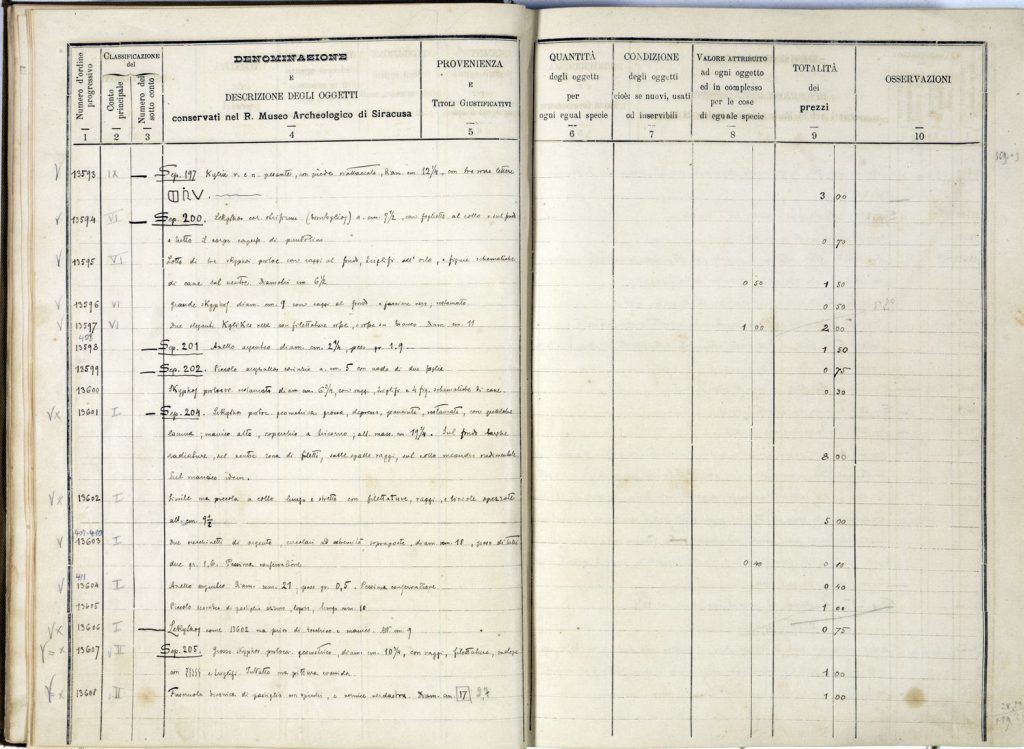 Numero d'ordine progressivo
CLASSIFICAZIONE del
Conto principale
Numero del sotto conto
DENOMINAZIONE
E
DESCRIZIONE DEGLI OGGETTI
conservati nel R. Museo Archeologico di Siracusa
PROVENIENZA
E
TITOLI GIUSTIFICATIVI
QUANTITÀ
degli oggetti
per
ogni egual specie
CONDIZIONE
degli oggetti
cioè: se nuovi, usati
od inservibili
VALORE ATTRIBUITO
ad ogni oggetto
ed in complesso
per le cose
di eguale specie
TOTALITÀ
dei
prezzi
OSSERVAZIONI
1 2 3 4 5 6 7 8 9 10
13593 IX Sep. 197 Kylix v. e n. pesante, con piede, diam. cm. 12 1/4, con tre lettere
3 00
13594 VI Sep. 200. Lekythos cor. a. cm. 7 1/2, con foglietto al collo e sul fondo
e tutto il corpo di puntolini 0 70
13595 VI Lotto di tre skyphoi con raggi al fondo, triglifi all'orlo, e figure schematiche
di cane sul ventre. Diametri cm. 6 1/2 0 50 1 50
13596 VI Grande skyphos diam. cm. 9 con raggi al fondo e restaurato 0 50
13597 VI Due eleganti Kylikes nere con filettature rosse, e rosse su bianco. Diam. cm. 11 1 00 2 00
408
13598 Sep. 201 Anello argenteo diam. cm. 2 1/4, peso gr. 1.9 1 50
13599 Sep. 202. Piccolo aryballos corinzio a. cm. 5 con nodo di due foglie 0 75
13600 Skyphos protocor. restaurato diam. cm. 6 1/2, con raggi, triglifi e 4 fig. schematiche di cane. 0 30
13601 I Sep. 204. Lekythos protoc. geometrica grossa, depressa, panciuta, restaurata, con qualche
lacuna; manico alto, coperchio a tricorno; alt. mass. cm. 19 1/4. Sul fondo larghe
radiature, sul ventre zona di filetti, sulle spalle raggi, sul collo meandro rudimentale 8 00
Sul manico idem.
13602 I Simile ma piccola a collo lungo e stretto con filettature, raggi, e spezzate
alt. cm. 9 1/2 5 00
409-410
13603 I Due cerchietti di argento, circolari ad estremità sovrapposte, diam. mm. 18, peso di tutti
due gr. 1,6. Pessima conservazione 0 40 0 80
411
13604 I Anello argenteo Diam. mm. 21, peso gr. 0,5. Pessima conservazione 0 40
13605 Piccolo scarabeo di pastiglia azzurra, lungo mm. 10 1 00
13606 I Lekythos come 13602 ma priva di bocchino e manico. Alt. cm. 9 0 75
13607 II Sep. 205. Grosso skyphos protocor. geometrico, diam. cm. 10 1/4, con raggi, filettature,
con e triglifi. Intatto ma pittura svanita. 1 00
13608 II di pastiglia e vernice verdastra. Diam. cm. 17 2,7 1 00